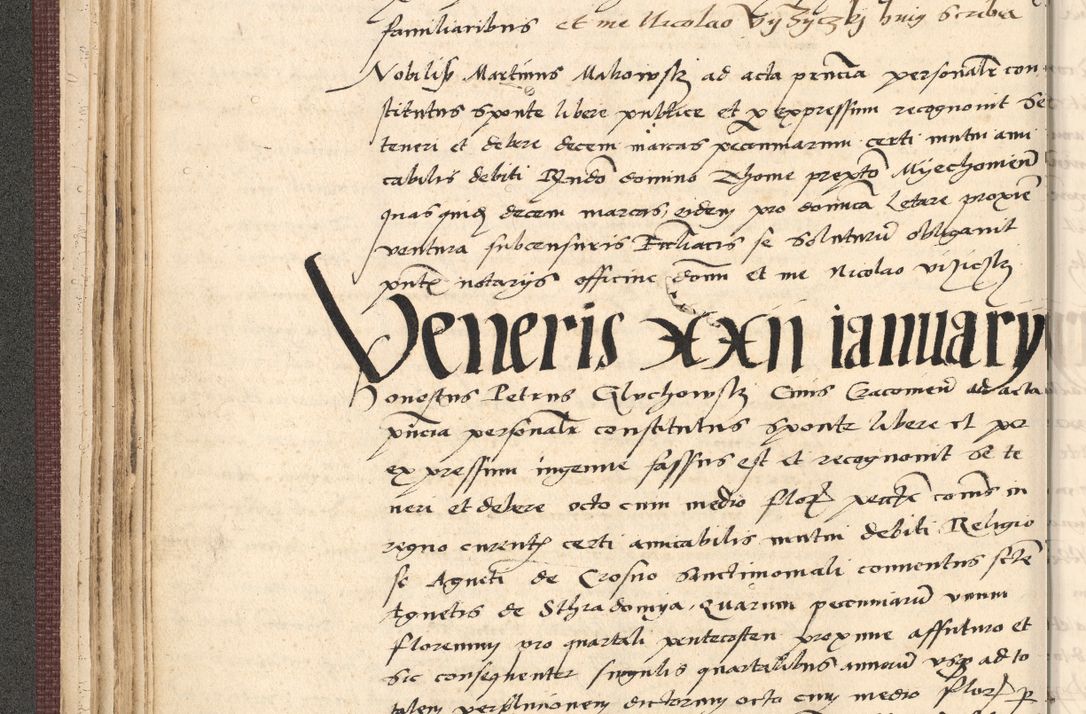 familiaribus et me Nicolao Vyzyczky huiq scriba
Nobilis Martinus Makowskj ad acta pncia personalr con
stitutus sponte libere publice et p expressum recognouit se
teneri et debere decem marcas pecuniarum certi mutui ami
cabilis debiti Rndo domino Thome prepto Myechouien
quas quidz decem marcas, eidem pro domica Letare proxie
ventura sub censuris Eccliacis se soluturu obligauit
pnte notarys officine domi et me Nicolao
Veneris xxii ianuary
Honestus Petrus Gluchowskj Ciuis Cracouien ad acta
pncia personalr constitutus sponte libere et per
expressum ingenue fassus est et recognouit se te
neri et debere octo cum medio flor pecc comis in
regno curent certi amicabilis mutui debiti Religio
se Agneti de Crosno sanctimoniali conuentus scte
Agnetis de Sthradomya, Quarum pecuniaru vnum
florenum pro quartali pentecosten proxime affuturo et
sic consequenter singulis quartalibus annoru vsq ad to
talem persolucionem dictorum octo cum medio flor p